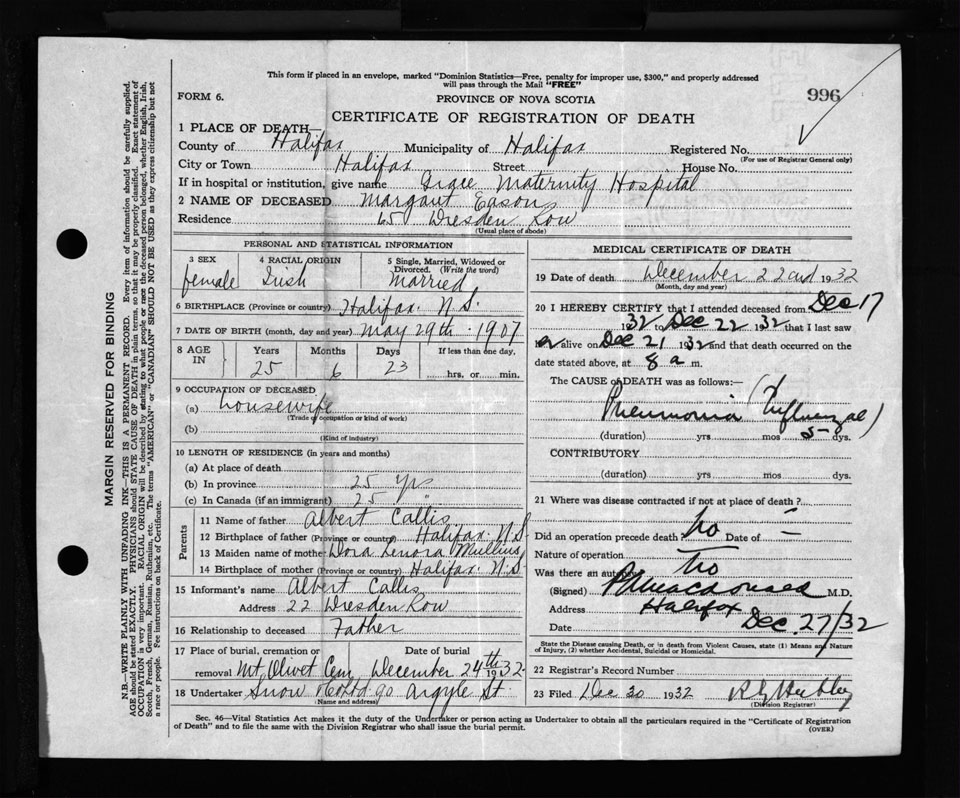 This form if placed in an envelope, marked "Dominion Statistics—Free, penalty for improper use, $300," and properly addressed
will pass through the Mail "FREE"
FORM 6.
PROVINCE OF NOVA SCOTIA
996
CERTIFICATE OF REGISTRATION OF DEATH
1 PLACE OF DEATH—
County of Halifax Municipality of Halifax Registered No.
(For use of Registrar General only)
City or Town Halifax Street House No.
If in hospital or institution, give name Grace Maternity Hospital
2 NAME OF DECEASED Margaret Eason
Residence 65 Dresden Row
(Usual place of abode)
PERSONAL AND STATISTICAL INFORMATION
3 SEX 4 RACIAL ORIGIN 5 Single, Married, Widowed or
Divorced. (Write the word)
female Irish Married
6 BIRTHPLACE (Province or country) Halifax. N.S.
7 DATE OF BIRTH (month, day and year) May 29th 1907
8 AGE IN Years Months Days If less than one day,
25 6 23 hrs. or min.
9 OCCUPATION OF DECEASED
(a) housewife
(Trade or occupation or kind of work)
(b)
(Kind of industry)
10 LENGTH OF RESIDENCE (in years and months)
(a) At place of death
(b) In province 25 yrs
(c) In Canada (if an immigrant) 25 "
Parents
11 Name of father Albert Callis
12 Birthplace of father (Province or country) Halifax. N.S.
13 Maiden name of mother Dora Lenora Mullins
14 Birthplace of mother (Province or country) Halifax. N.S.
15 Informant's name Albert Callis
Address 22 Dresden Row
16 Relationship to deceased Father
17 Place of burial, cremation or Date of burial
removal Mt Olivet Cem December 24th 1932
18 Undertaker Snow 90 Argyle St.
(Name and address)
MEDICAL CERTIFICATE OF DEATH
19 Date of death December 22nd 1932
(Month, day and year)
20 I HEREBY CERTIFY that I attended deceased from Dec 17
1932 to Dec 22 1932 that I last saw
er alive on Dec 21 1932 and that death occurred on the
date stated above, at 8 a m.
The CAUSE of DEATH was as follows:—
Pneumonia (Influenzal)
(duration) yrs mos 5 dys.
CONTRIBUTORY
(duration) yrs. mos. dys.
21 Where was disease contracted if not at place of death?
Did an operation precede death no Date of —
Nature of operation —
Was there an autopsy no
(Signed) Macdonald M.D.
Address Halifax
Date Dec. 27/32
State the Disease causing Death, or in death from Violent Causes, state (1) Means and Nature
of Injury, (2) whether Accidental, Suicidal or Homicidal.
22 Registrar's Record Number
23 Filed Dec 30 1932
(Division Registrar)
Sec. 46—Vital Statistics Act makes it the duty of the Undertaker or person acting as Undertaker to obtain all the particulars required in the "Certificate of Registration
of Death" and to file the same with the Division Registrar who shall issue the burial permit.
(OVER)
MARGIN RESERVED FOR BINDING
N.B.—WRITE PLAINLY WITH UNFADING INK—THIS IS A PERMANENT RECORD. Every item of information should be carefully supplied.
AGE should be stated EXACTLY. PHYSICIANS should STATE CAUSE OF DEATH in plain terms, so that it may be properly classified. Exact statement of
OCCUPATION is very important. RACIAL ORIGIN will be described by stating to what people or race the deceased person belonged, whether English, Irish,
Scotch, French, German, Russian, Ruthenian, etc. The terms "AMERICAN" or "CANADIAN" SHOULD NOT BE USED as they express citizenship but not
a race or people. Fee instructions on back of Certificate.